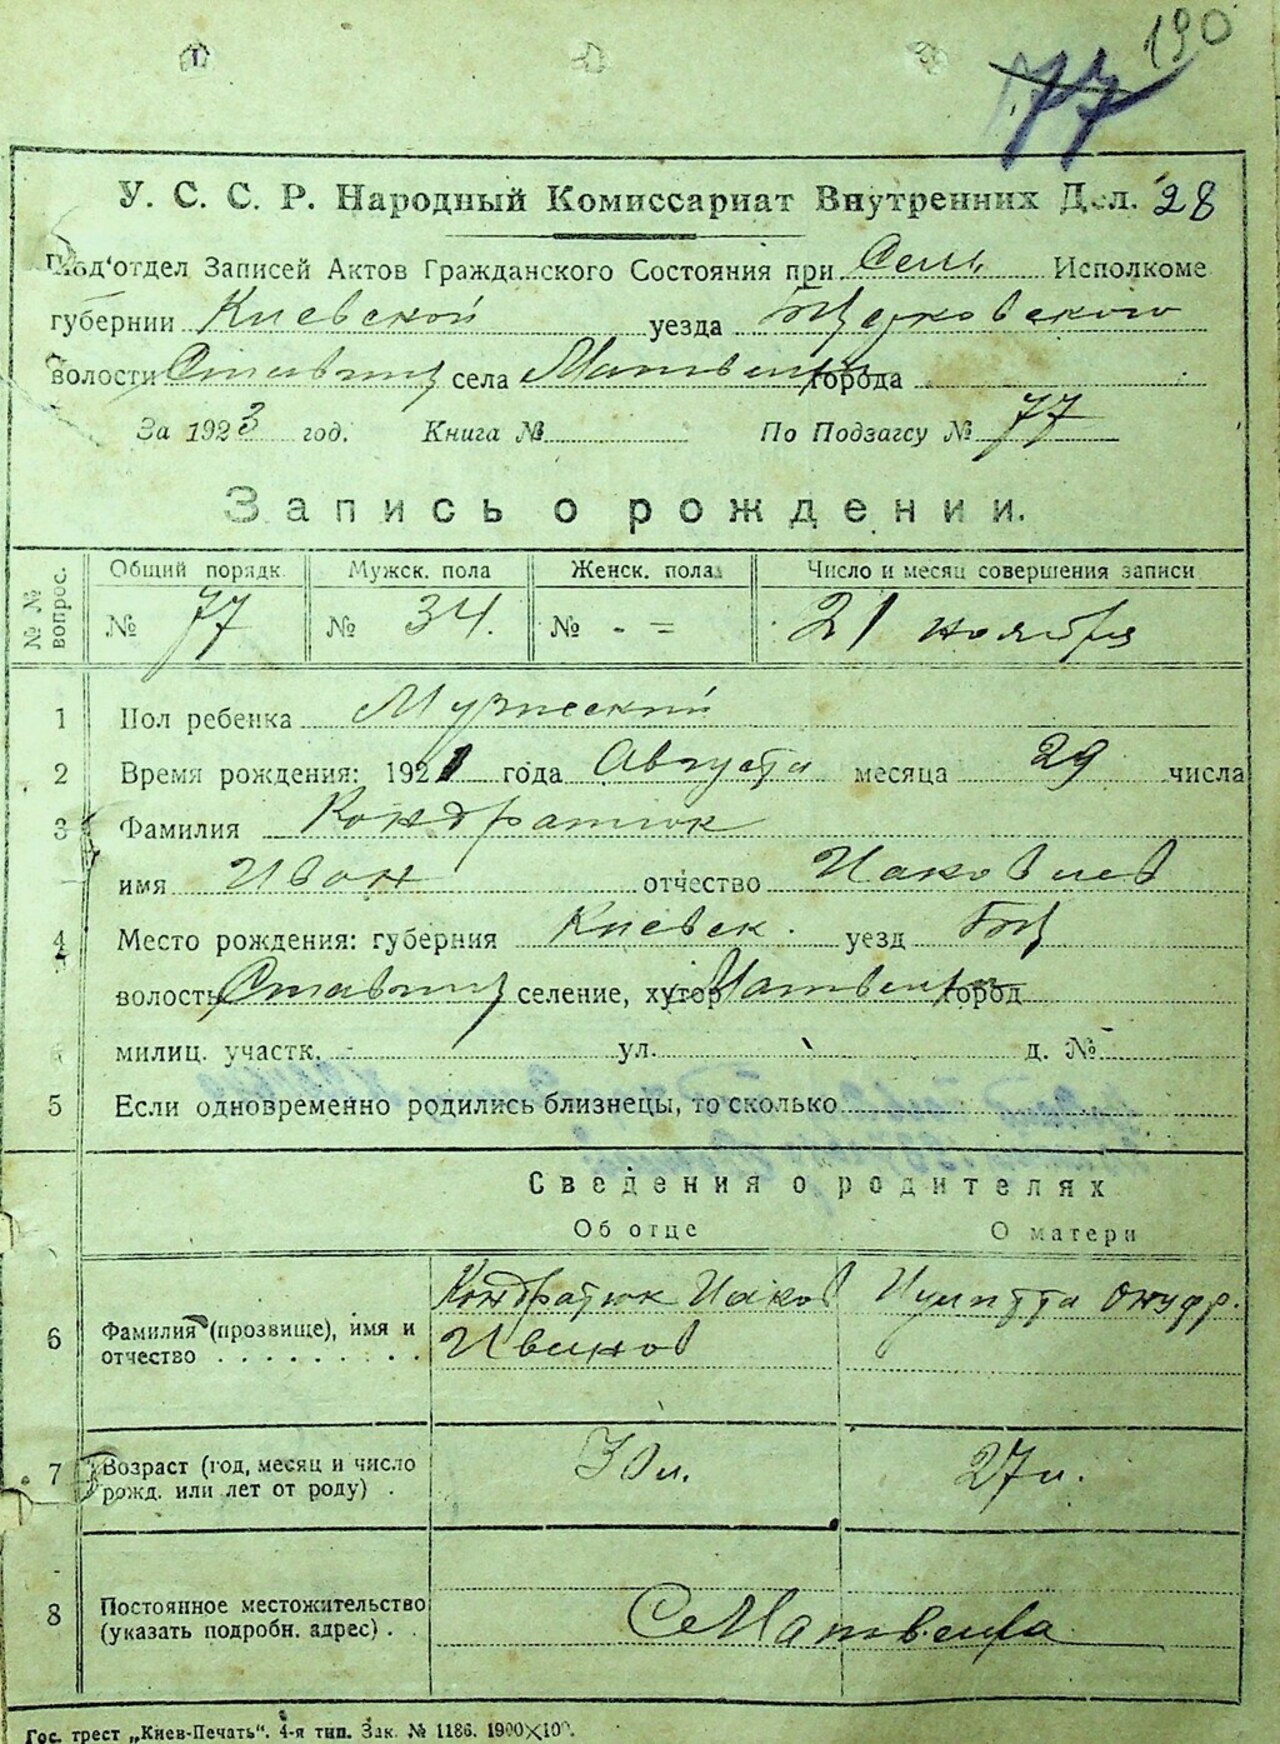 190
77
У. С. С. Р. Народный Комиссариат Внутренних Дел. 28
Под'отдел Записей Актов Гражданского Состояния при Сель Исполкоме
губернии Киевской уезда БЦерковского
волости Ставищ села Матвеиха города
За 1923 год. Книга № По Подзагсу № 77
Запись о рождении.
№№ вопрос. Общий порядк. Мужск. пола Женск. пола Число и месяц совершения записи
№ 77 № 34. № - = 21 ноября
1 Пол ребенка Мужеский
2 Время рождения: 1921 года Августа месяца 29 числа
3 Фамилия Кондратюк
имя Иван отчество Иаковлев
4 Место рождения: губерния Киевск. уезд БЦ
волость Ставищ селение, хутор Матвеиха город
милиц. участк. ул. д. №
5 Если одновременно родились близнецы, то сколько
Сведения о родителях
Об отце О матери
Кондратюк Иаков Онуфр.
6 Фамилия (прозвище), имя и отчество . . . . . . . . Иванов
7 Возраст (год, месяц и число рожд. или лет от роду) . 30 л. 27 л.
8 Постоянное местожительство (указать подробн. адрес) . . Се Матвеиха
Гос. трест „Киев-Печать“. 4-я тип. Зак. № 1186. 1900×100.